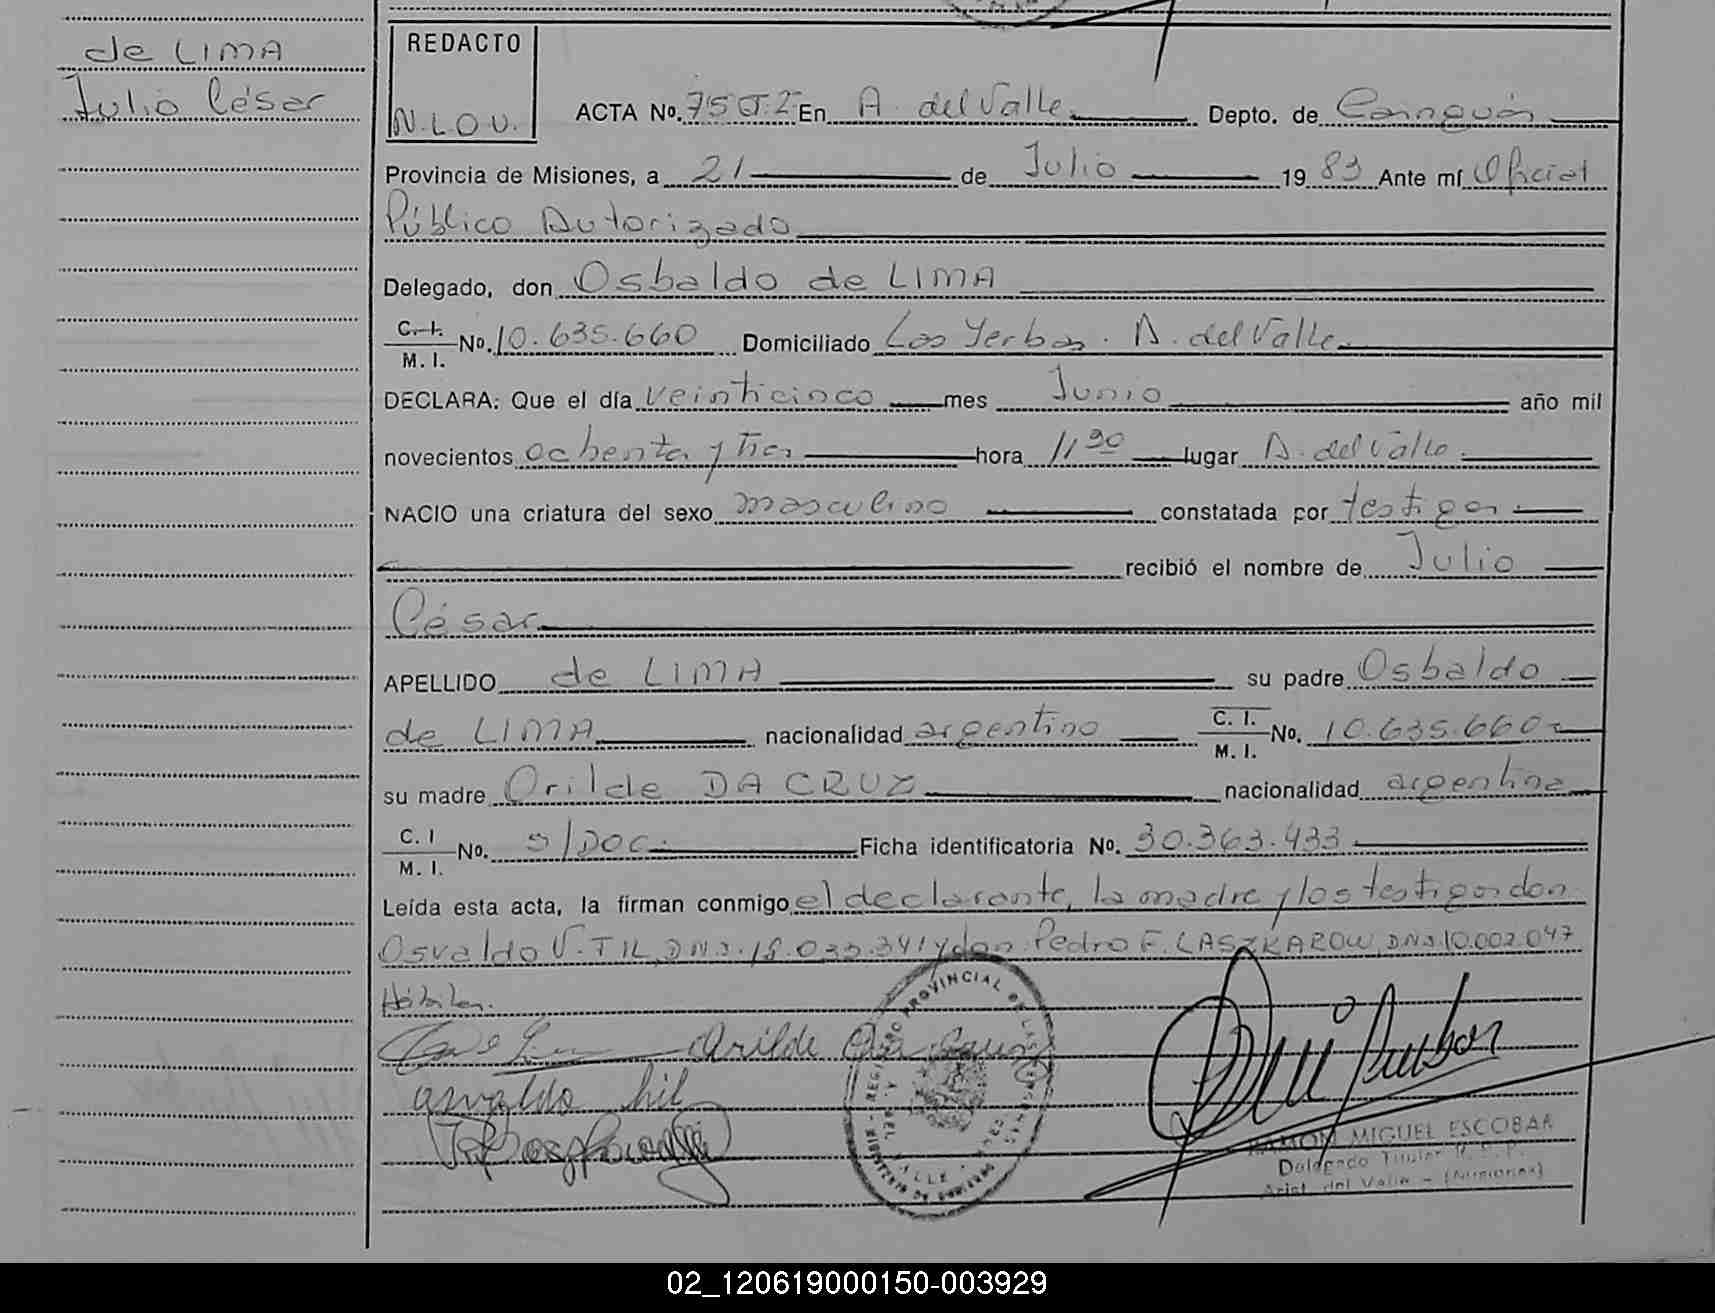 de LIMA
Julio César
REDACTO
N.L.O.V.
ACTA No. 75 En A. del Valle Depto. de Cainguás
Provincia de Misiones, a 21 de Julio 1983 Ante mí Oficial
Público Autorizado
Delegado, don Osbaldo de LIMA
C. I. M. I. No. 10.635.660 Domiciliado Las Yerbas. A. del Valle
DECLARA: Que el día veinticinco mes Junio año mil
novecientos ochenta y tres hora 11 30 lugar A. del Valle
NACIO una criatura del sexo masculino constatada por testigos
recibió el nombre de Julio
César
APELLIDO de LIMA su padre Osbaldo
de LIMA nacionalidad argentino C. I. M. I. No. 10.635.660
su madre Orilde DA CRUZ nacionalidad argentina
C. I M. I. No. S/DOC. Ficha identificatoria No. 30.363.433
Leída esta acta, la firman conmigo el declarante, la madre y los testigos don
Osvaldo V. TIL, DNI. 18.033.341 y don Pedro F. LASZKAROW, DNI 10.002.047
Hábiles.
Orilde Da Cruz
osvaldo til
REGISTRO PROVINCIAL DE LAS PERSONAS
MINISTERIO DE GOBIERNO
RAMON MIGUEL ESCOBAR
Delegado Titular R. P. P.
Arist. del Valle - (Misiones)
02_120619000150-003929